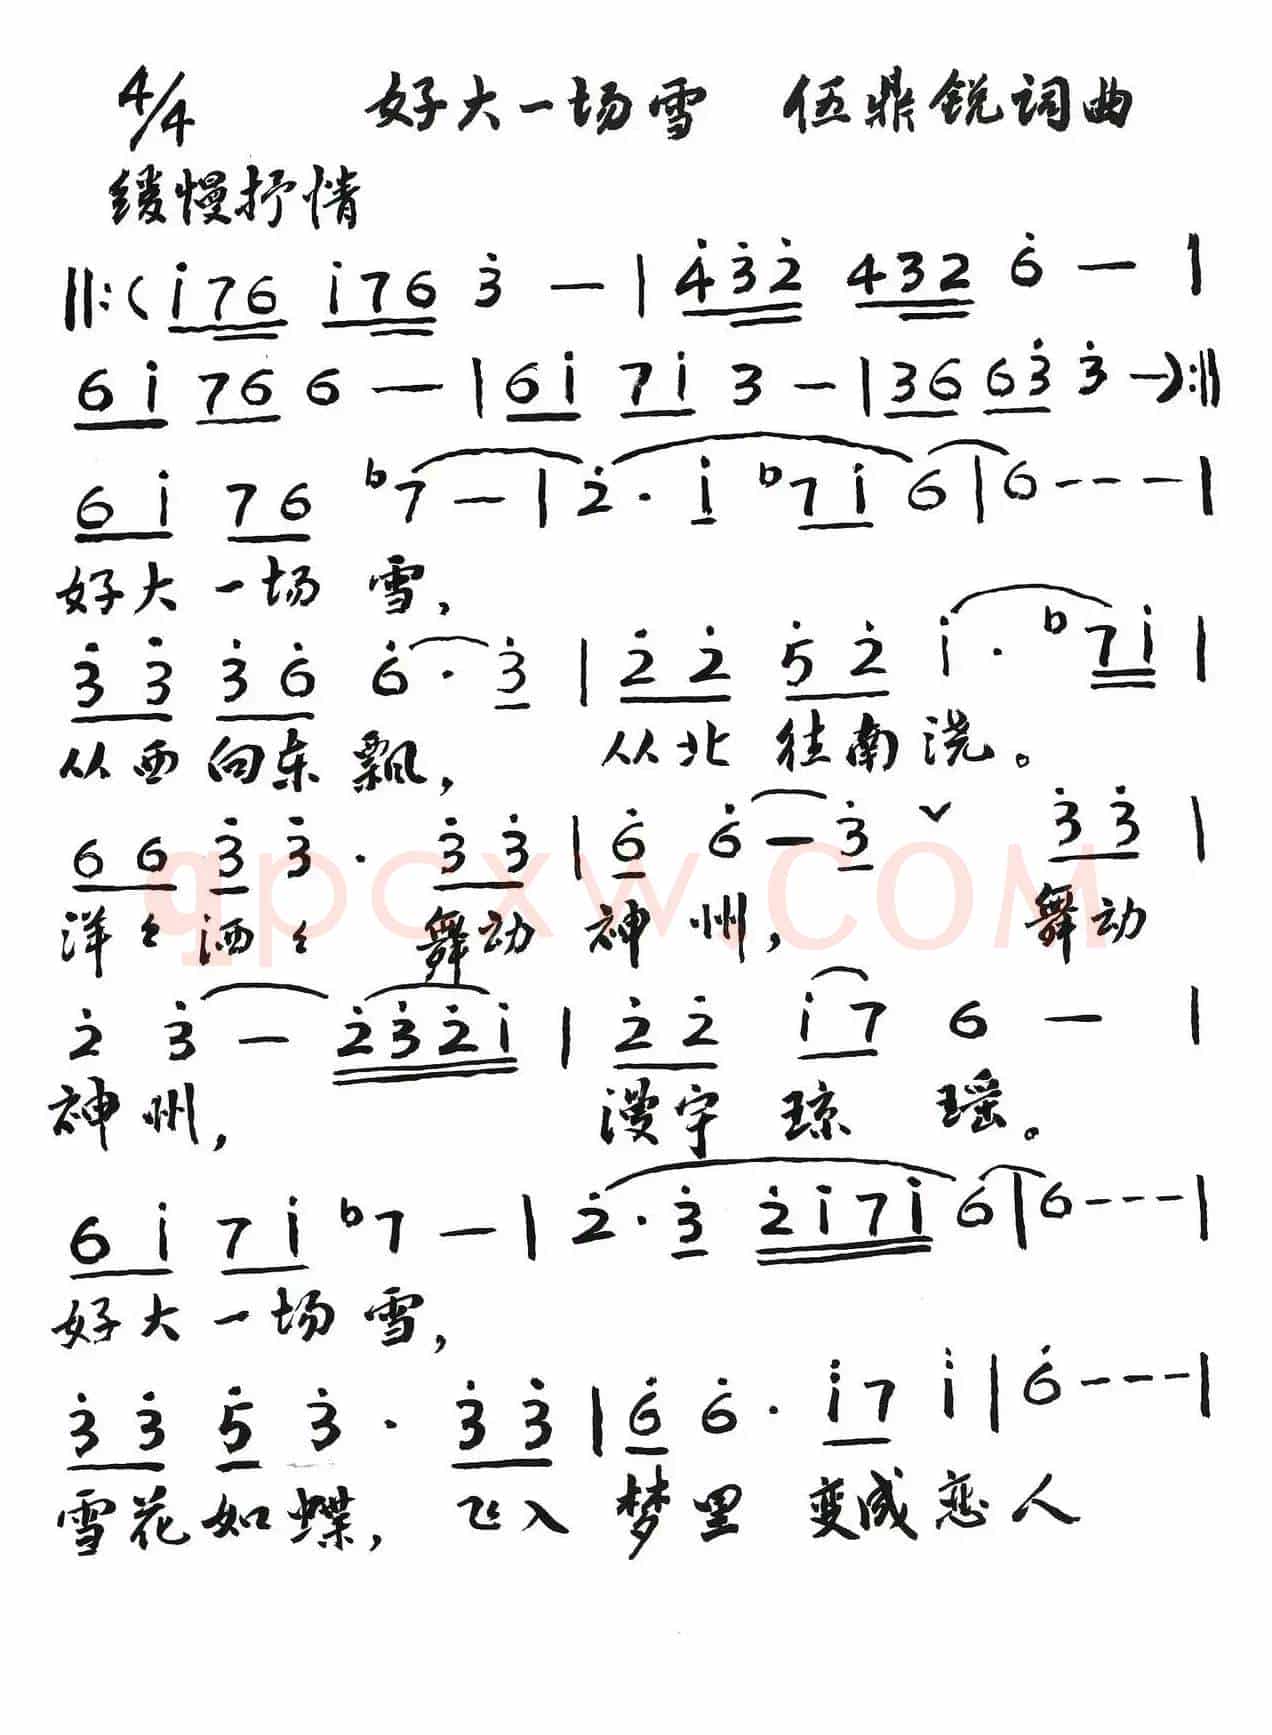 4/4 好大一场雪 伍鼎锐词曲
缓慢抒情
||:(i̇76 i̇76 3̇ — | 4̇3̇2̇ 432 6̇ — |
6i̇ 76 6 — | 6i̇ 7i̇ 3 — | 36 63̇ 3̇ —):||
6i̇ 76 ♭7 — | 2̇· i̇ ♭7i̇ 6 | 6 - - - |
好大 一场 雪,
3̇3̇ 3̇6̇ 6̇· 3̇ | 2̇2̇ 5̇2̇ i̇· ♭7i̇ |
从西向东飘, 从北 往南洗。
663̇3̇· 3̇3̇ | 6̇ 6̇ — 3̇ ˇ 3̇3̇ |
洋々洒々 舞动 神州, 舞动
2̇ 3̇ — 2̇3̇2̇i̇ | 2̇2̇ i̇7 6 — |
神州, 漫宇 琼 瑶。
6i̇ 7i̇ ♭7 — | 2̇· 3̇ 2̇i̇7i̇ 6 | 6 - - - |
好大 一场 雪,
3̇3̇ 5̇3̇· 3̇3̇ | 6̇ 6̇· i̇7 i̇ | 6̇ - - - |
雪花如蝶, 飞入 梦里 变成恋人
qpcxw.COM